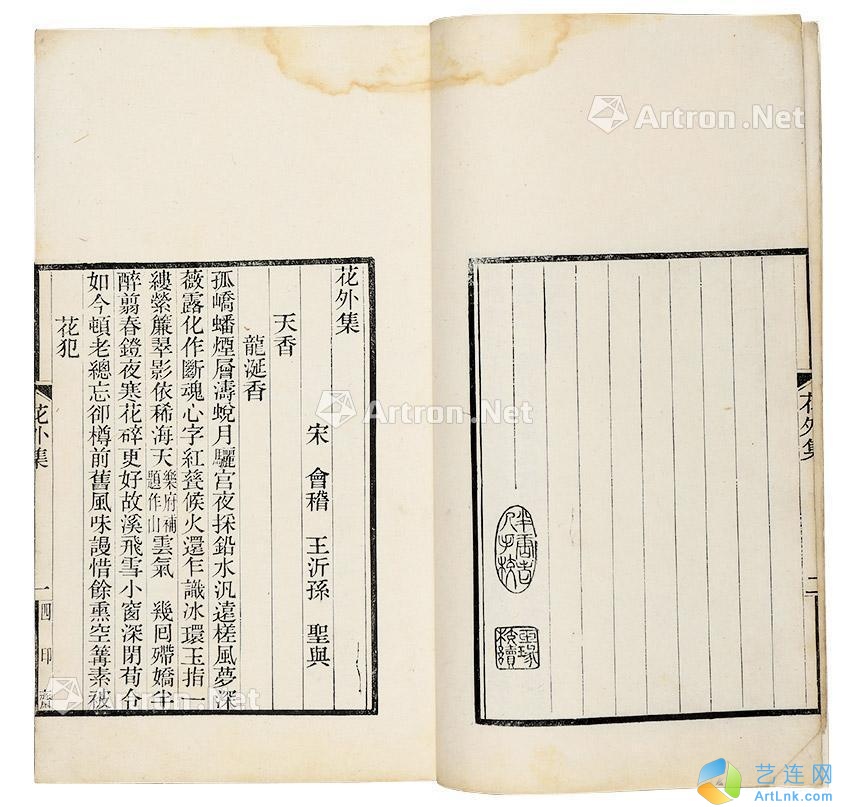 花外集
花外集
宋 會稽 王沂孫 聖與
天香
龍涎香
孤嶠蟠煙層濤蛻月驪宮夜採鉛水汎遠槎風夢深
薇露化作斷魂心字紅甆候火還乍識冰環玉指一
縷縈簾翠影依稀海天樂府補題作山雲氣 幾囘殢嬌半
醉翦春鐙夜寒花碎更好故溪飛雪小窗深閉荀令
如今頓老總忘卻樽前舊風味謾惜餘熏空篝素被
花犯
花外集 一 四印齋
Artron.Net
Artron.Net
Artron.Net
Artron.Net
艺连网
ArtLnk.com